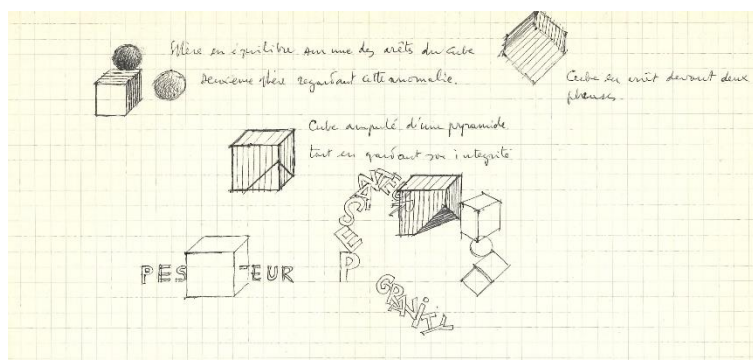 Sphère en équilibre sur une des arêts du cube
Deuxième sphère regardant cette anomalie.
Cube en arrêt devant deux
phrases.
Cube amputé d'une pyramide
tout en gardant son intégrité
PESANTEUR
PES TEUR
GRAVITÉ